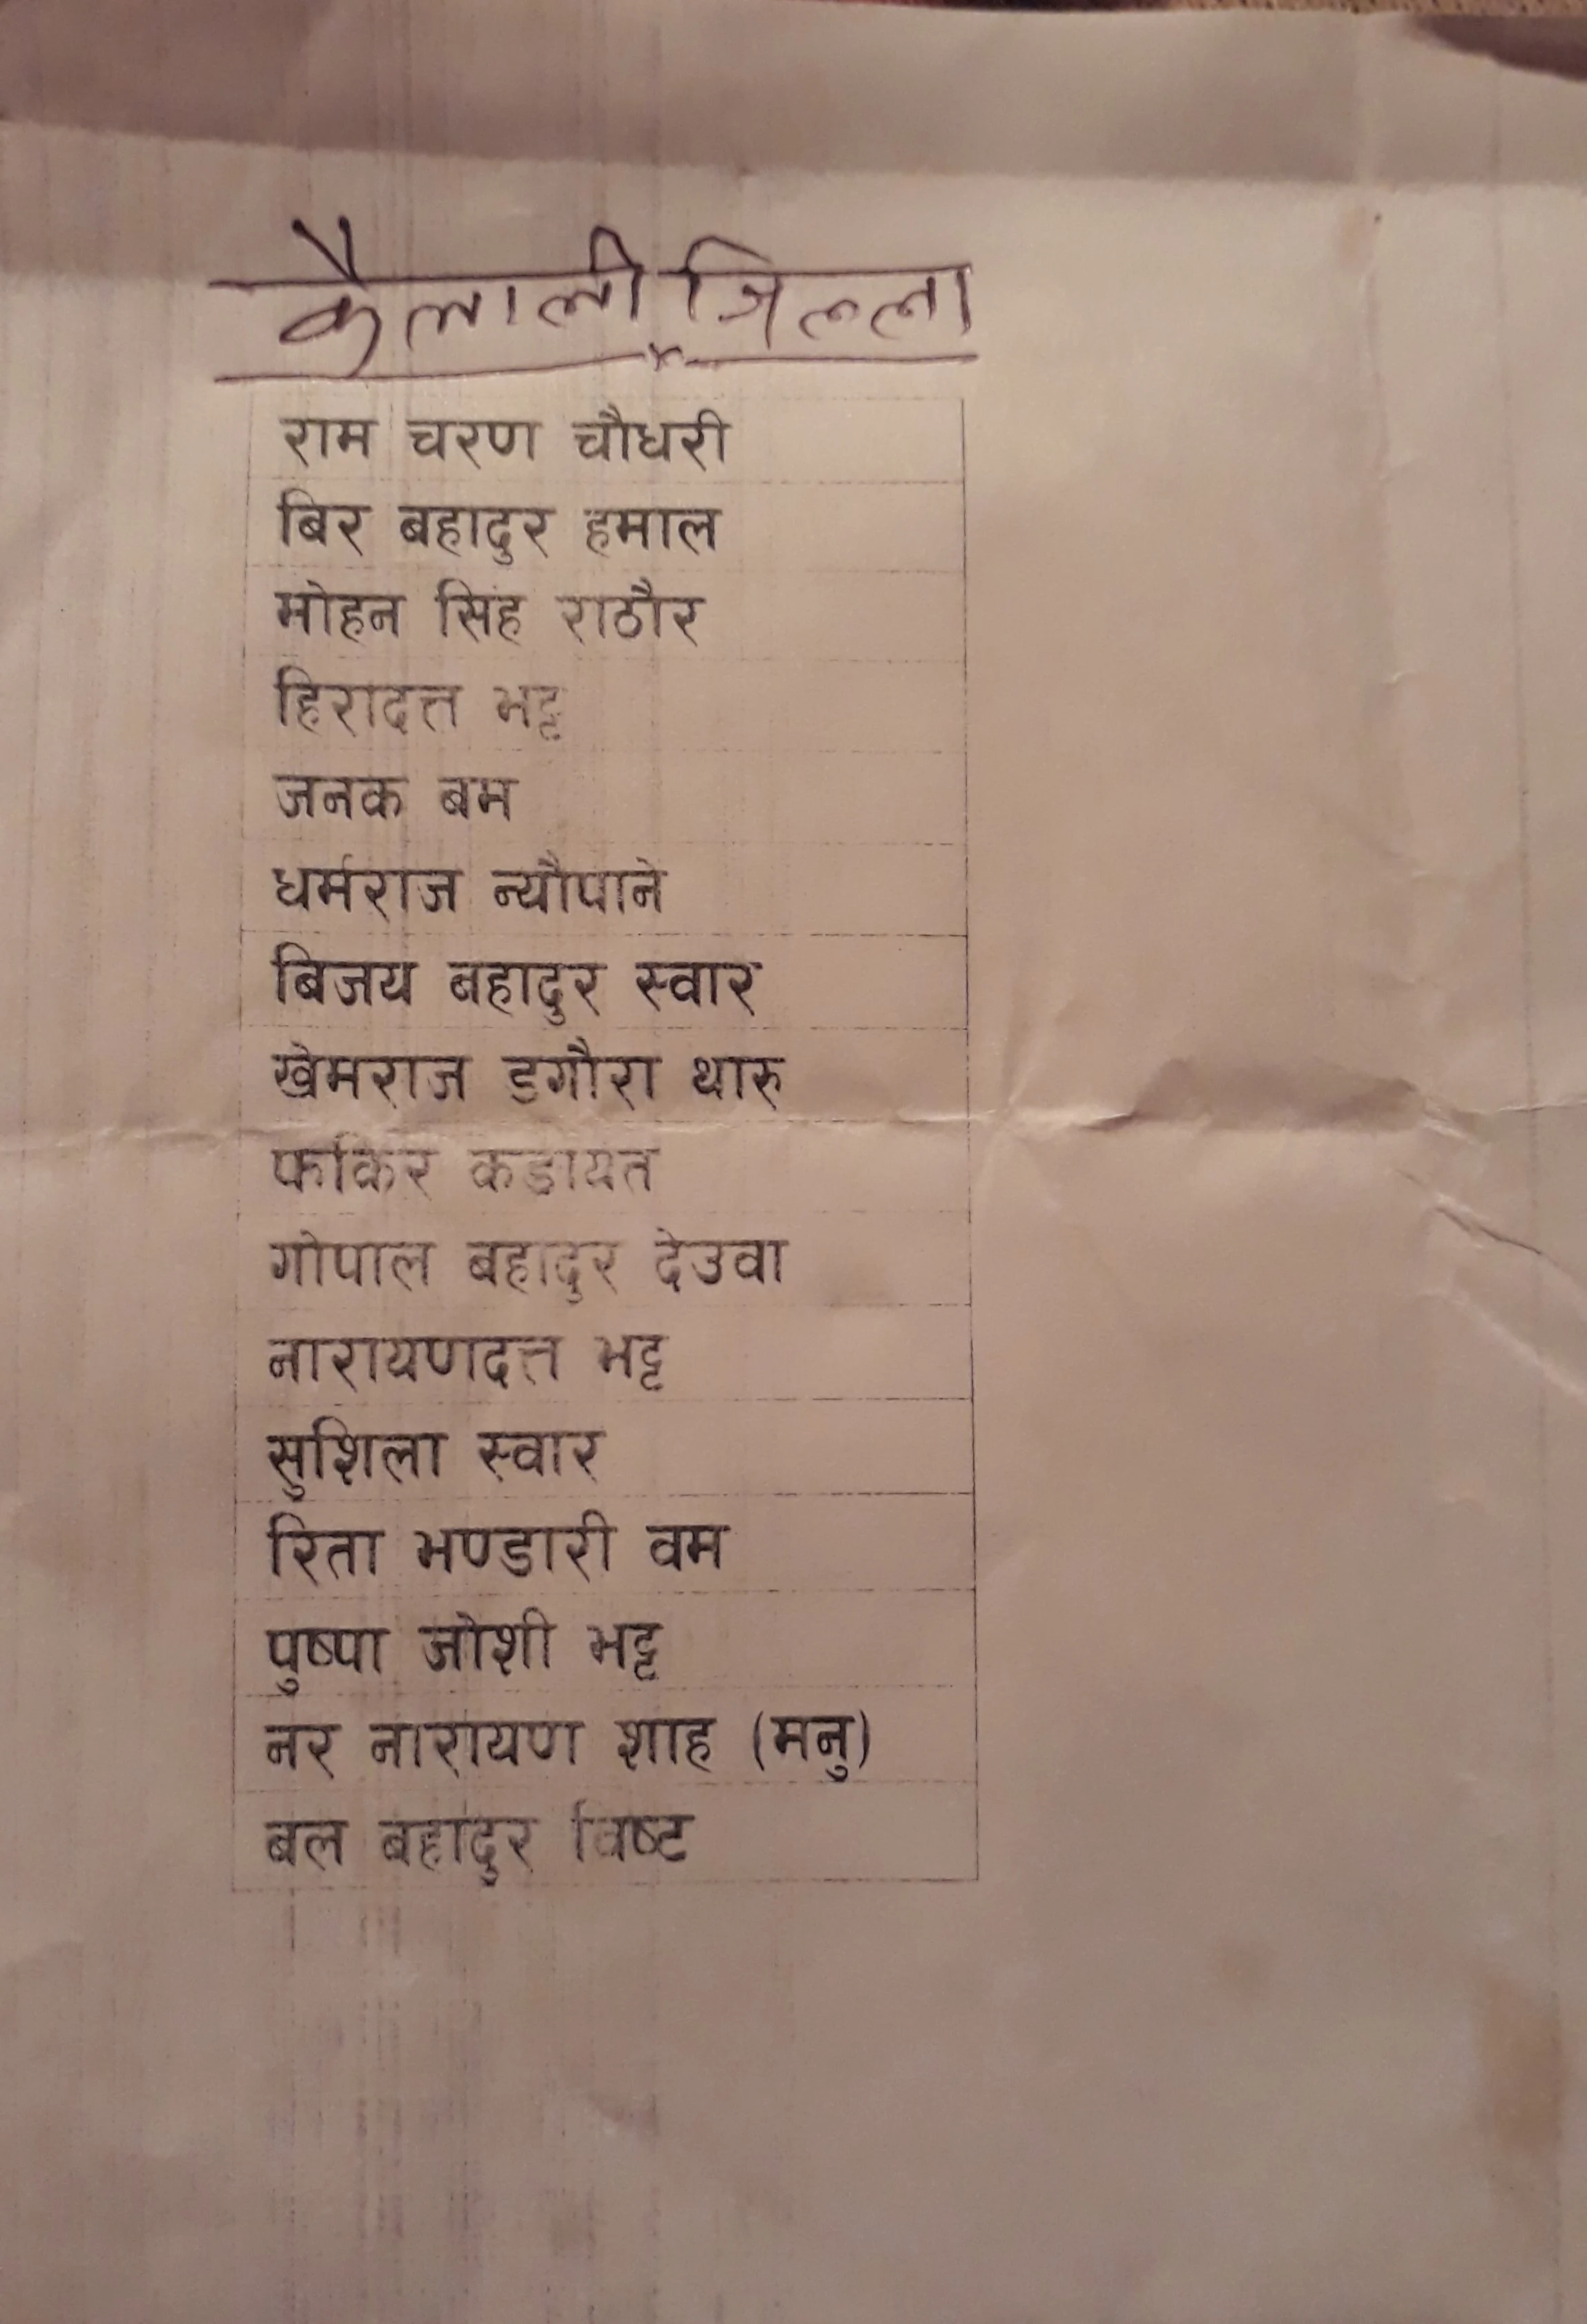 कैलाली जिल्ला
राम चरण चौधरी
बिर बहादुर हमाल
मोहन सिंह राठौर
हिरादत्त भट्ट
जनक बम
धर्मराज न्यौपाने
बिजय बहादुर स्वार
खेमराज डगौरा थारु
फकिर कडायत
गोपाल बहादुर देउवा
नारायणदत्त भट्ट
सुशिला स्वार
रिता भण्डारी वम
पुष्पा जोशी भट्ट
नर नारायण शाह (मनु)
बल बहादुर विष्ट